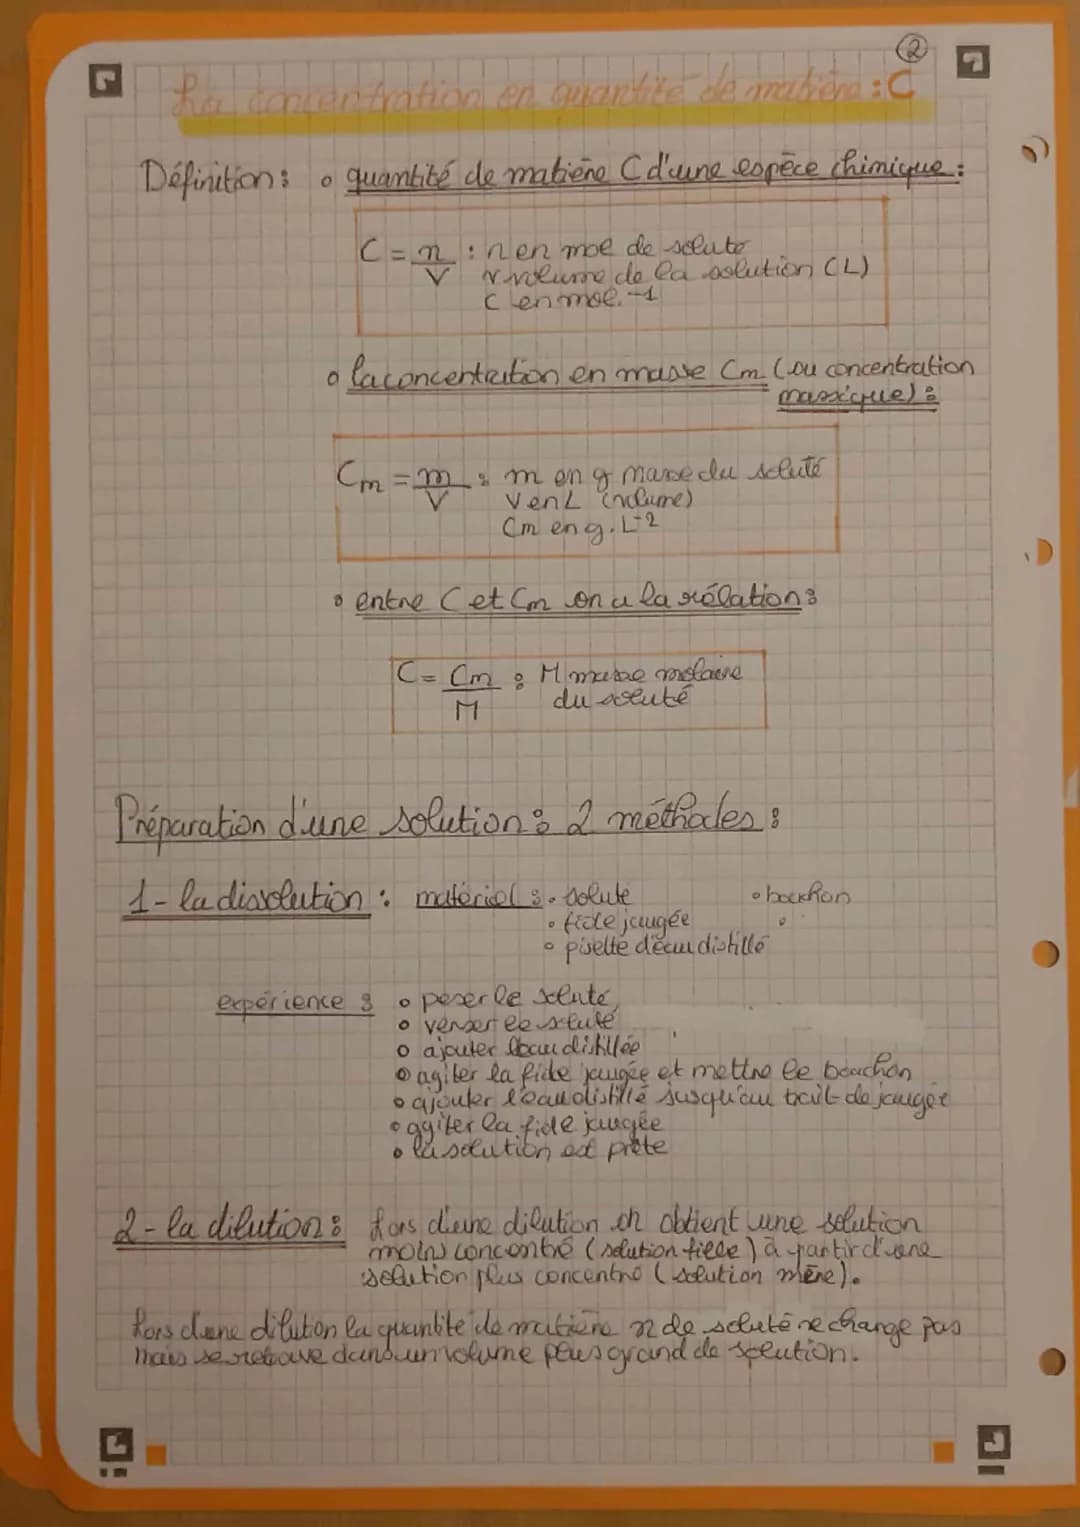 ②
La concentration en quantité de matière : C
Définition : • quantité de matière C d'une espèce chimique :
C = n/V : n en mol de soluté
V volume de la solution (L)
C en mol.⁻¹
• la concentration en masse Cm (ou concentration
massique) :
Cm = m/V : m en g masse du soluté
V en L (volume)
Cm en g.L⁻²
• entre C et Cm on a la rélation :
C = Cm/M : M masse molaire
du soluté
Préparation d'une solution : 2 méthodes :
1 - la dissolution : matériel : • soluté • bouchon
• fiole jaugée •
• piselte d'eau distillé
expérience : • peser le soluté
• verser le soluté
• ajouter l'eau distillée
• agiter la fiole jaugée et mettre le bouchon
• ajouter l'eau distillé jusqu'au trait de jauger
• agiter la fiole jaugée
• la solution est prête
2 - la dilution : Lors d'une dilution on obtient une solution
moins concentré (solution fille) à partir d'une
solution plus concentré (solution mère).
Lors d'une dilution la quantité de matière n de soluté ne change pas
mais se retrouve dans un volume plus grand de solution.